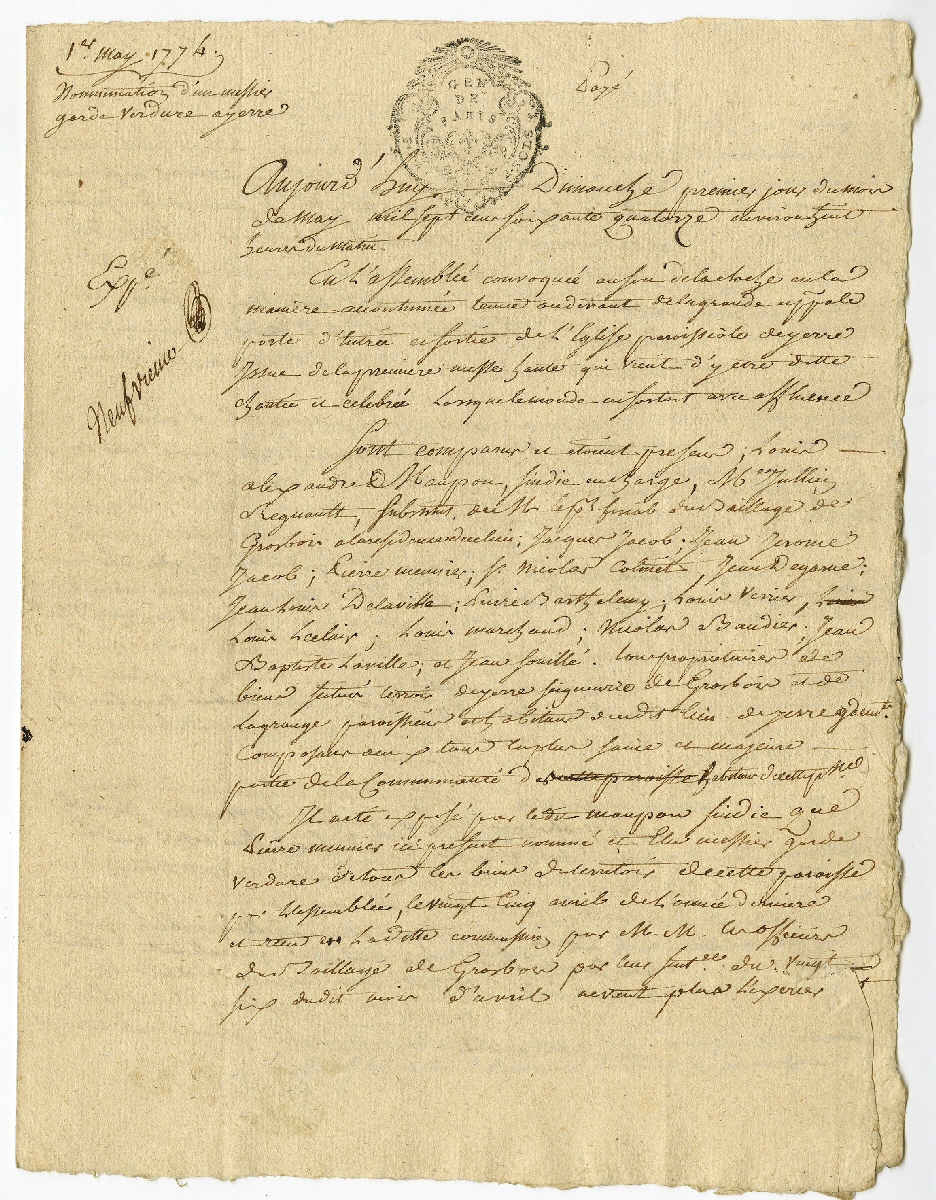 1er may 1774.
Nomination d'un messier
garde verdure a yerre
GEN
DE
PARIS
Payé
Aujourd'huy Dimanche premier jour du mois
de may mil sept cent soixante quatorze environ huit
heures du matin
Expé.
En l'assemblée convoquée au son de la cloche en la
maniere accoutumée tenue au devant de la grande et pple
porte d'Entrée et sortie de l'Eglise paroissiale d'yerre
Issue de la premiere messe haute qui vient d'y etre ditte
chantée et celebrée Lorsque le monde en sortoit avec affluence
Neufvieme
Sont comparus et etoient presens ; Louis
alexandre Maupou, sindic en charge, Me Jullien
Regnault, substitut de Mr le pr fiscal du Baillage de
Grosbois a la residence de ce lieu ; Jacques Jacob ; Jean Jerome
Jacob ; Pierre meunier ; Sr Nicolas Colinet Jean Degarne ;
Jean Louis Delaville ; Pierre Barthelemy ; Louis Verrier, Louis
Louis Leclair ; Louis marchand ; Nicolas Baudier ; Jean
Baptiste Laville ; et Jean souillé. tous proprietaires de
biens scitués terroir d'yerre seigneurie de Grosbois et de
Lagrange paroissiens et habitans dudit lieu de yerre
Composans eux tous la plus saine et majeure
partie de la Communauté des cette paroisse habitans de cette psse
Il a eté exposé par ledt maupou sindic que
Pierre meunier ici present nommé et Elu messier garde
verdure de tous les biens du territoire de cette paroisse
par L'assemblée, le vingt Cinq avril de l'année derniere
et receu en laditte commission par M. M. les officiers
du Baillage de Grosbois par leur sentce du vingt
six dudit mois d'avril ne veut plus L'exercer